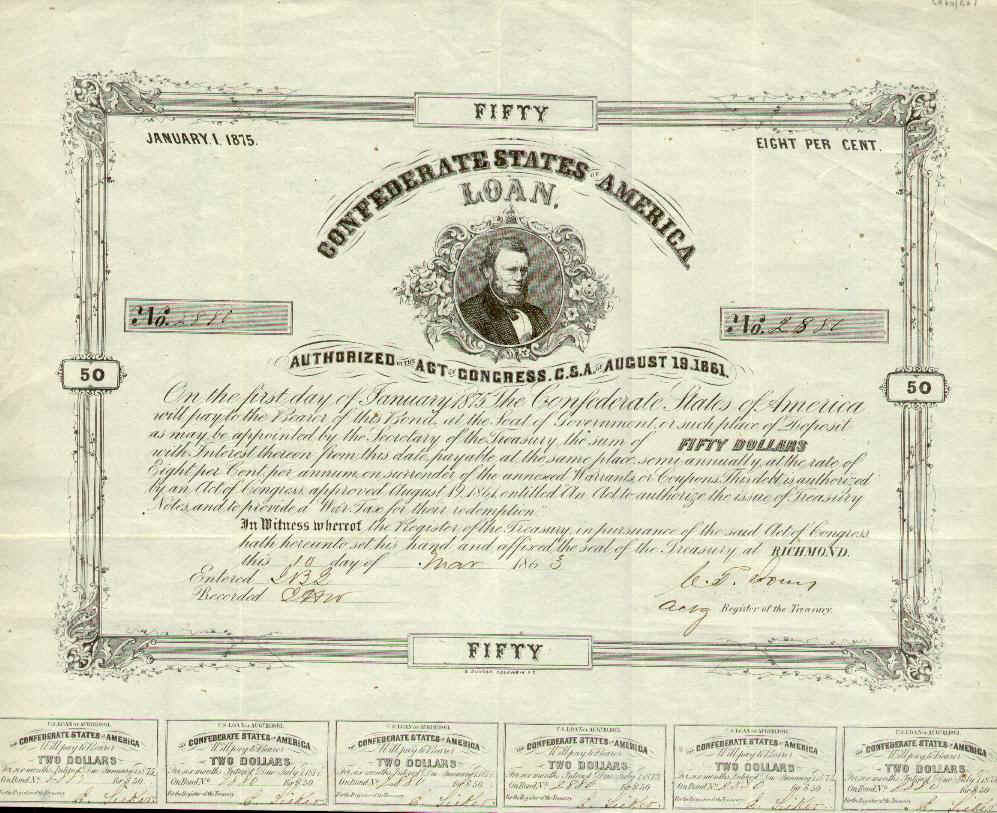 FIFTY
JANUARY. 1. 1875.
EIGHT PER CENT.
CONFEDERATE STATES OF AMERICA,
LOAN,
No.
No.
AUTHORIZED BY THE ACT OF CONGRESS. C.S.A. OF AUGUST 19. 1861.
50
50
On the first day of January 1875, The Confederate States of America
will pay to the Bearer of this Bond, at the Seat of Government, or such place of Deposit
as may be appointed by the Secretary of the Treasury, the sum of FIFTY DOLLARS
with Interest thereon from this date, payable at the same place, semi-annually, at the rate of
Eight per Cent, per annum, on surrender of the annexed Warrants or Coupons. This debt is authorized
by an Act of Congress approved August 19, 1861, entitled An Act to authorize the issue of Treasury
Notes, and to provide a "War Tax for their redemption."
In Witness whereof the Register of the Treasury in pursuance of the said Act of Congress
hath hereunto set his hand and affixed the seal of the Treasury at RICHMOND.
this 10 day of Mar 1863
Entered
Recorded
C. T. Jones
Actg Register of the Treasury.
FIFTY
C.S. LOAN OF AUG. 19. 1861.
CONFEDERATE STATES OF AMERICA
Will pay to Bearer
TWO DOLLARS
For six months Int.
On Bond No. for $50
For the Register of the Treasury
C.S. LOAN OF AUG. 19. 1861.
CONFEDERATE STATES OF AMERICA
Will pay to Bearer
TWO DOLLARS
For six months Int.
On Bond No. for $50
For the Register of the Treasury
C.S. LOAN OF AUG. 19. 1861.
CONFEDERATE STATES OF AMERICA
Will pay to Bearer
TWO DOLLARS
For six months Int.
On Bond No. for $50
For the Register of the Treasury
C.S. LOAN OF AUG. 19. 1861.
CONFEDERATE STATES OF AMERICA
Will pay to Bearer
TWO DOLLARS
For six months Int.
On Bond No. for $50
For the Register of the Treasury
C.S. LOAN OF AUG. 19. 1861.
CONFEDERATE STATES OF AMERICA
Will pay to Bearer
TWO DOLLARS
For six months Int.
On Bond No. for $50
For the Register of the Treasury
C.S. LOAN OF AUG. 19. 1861.
CONFEDERATE STATES OF AMERICA
Will pay to Bearer
TWO DOLLARS
For six months Int.
On Bond No. for $50
For the Register of the Treasury